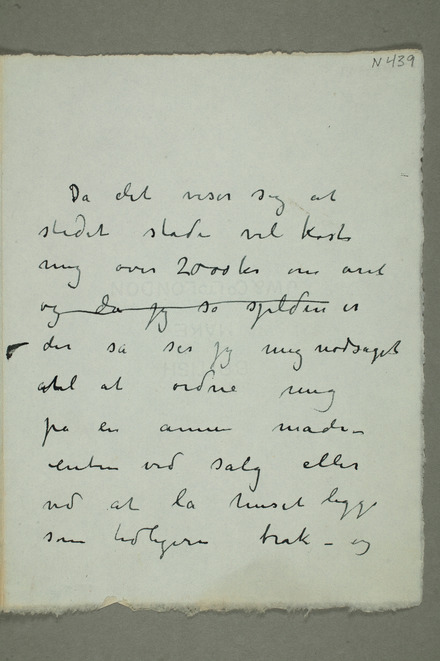 N 439
Da det viser seg at
stedet stadi vil koste
mig over 2000 kr om aret
og da jeg så sjelden er
der så ser jeg mig nødsaget
til at ordne mig
på en annen måde –
enten ved salg eller
ved at la huset ligge
som tidligere brak – og